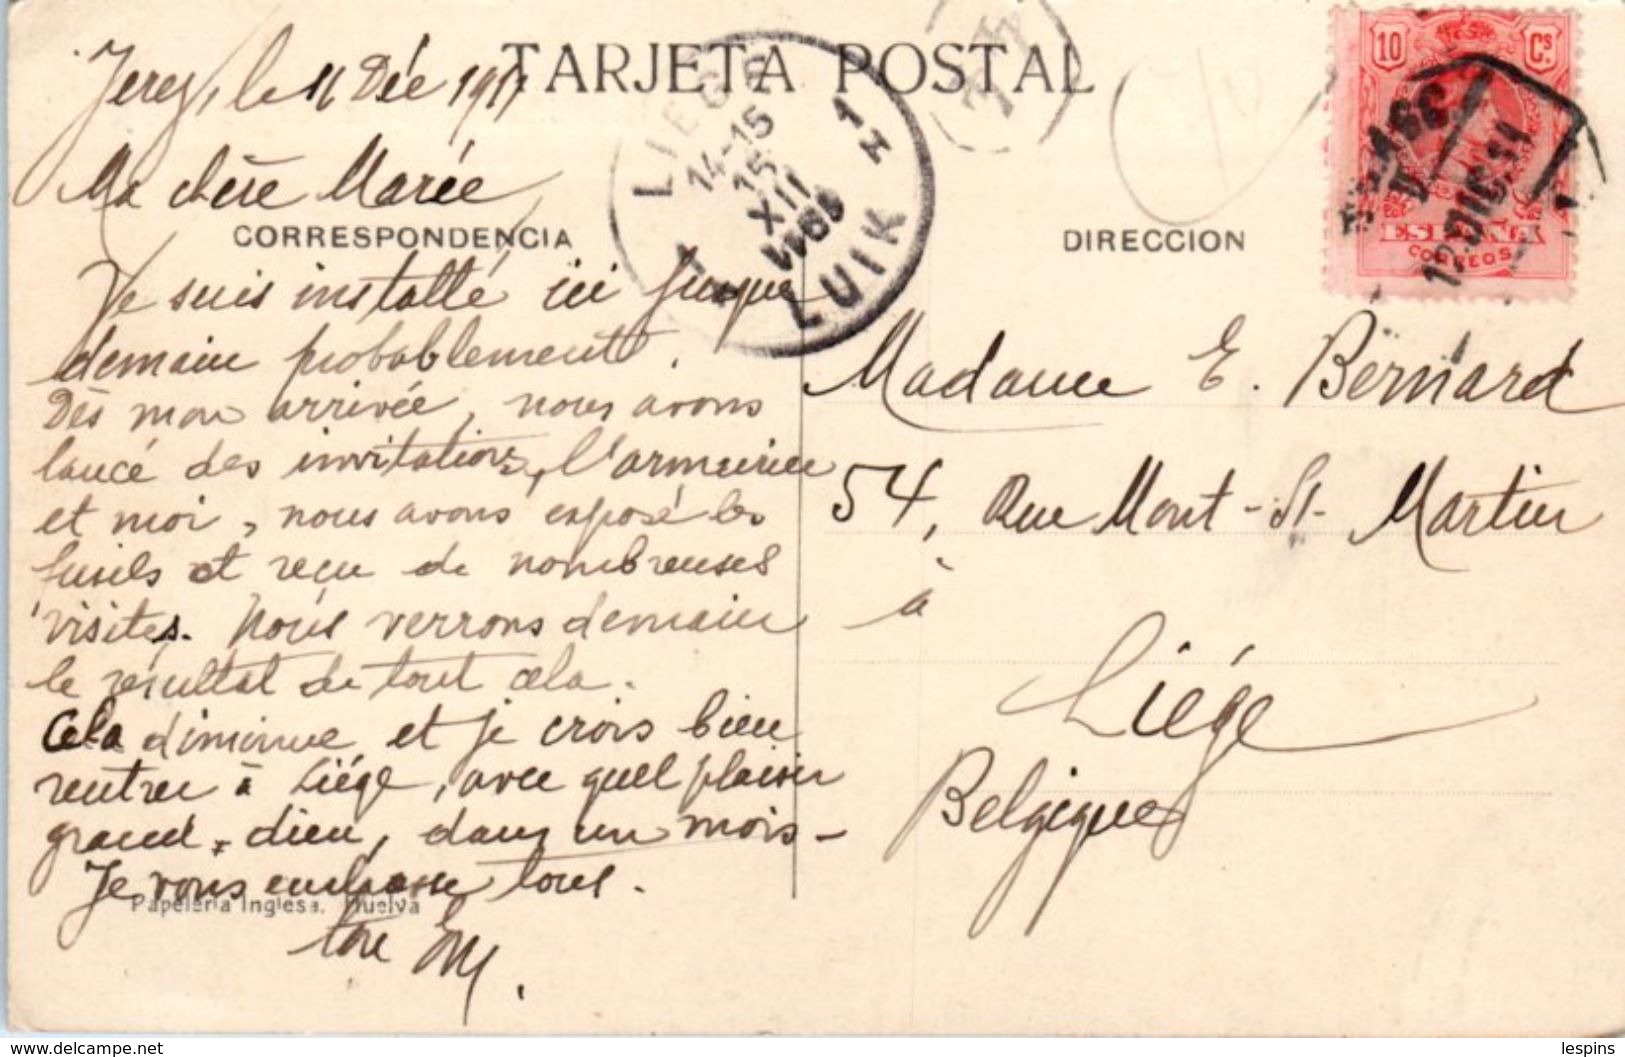 TARJETA POSTAL
Jerez, le 11 Déc 1911
Ma chère Marée
CORRESPONDENCIA
Je suis installé ici jusque
demain probablement.
Dès mon arrivée, nous avons
lancé des invitations, l'armurier
et moi, nous avons exposé les
fusils et reçu de nombreuses
visites. Nous verrons demain
le résultat de tout cela.
Cela diminue et je crois bien
rentrer à Liége, avec quel plaisir
grand dieu, dans un mois -
Je vous embrasse tous.
Papelería Inglesa. Huelva
ton
LIEGE
14-15
15
XII
1911
LUIK
1 H
DIRECCION
10 Cs.
ESPAÑA
CORREOS
12.DIC.11
Madame E. Bernard
54, Rue Mont-St-Martin
à
Liége
Belgique
lespins
https://www.delcampe.net